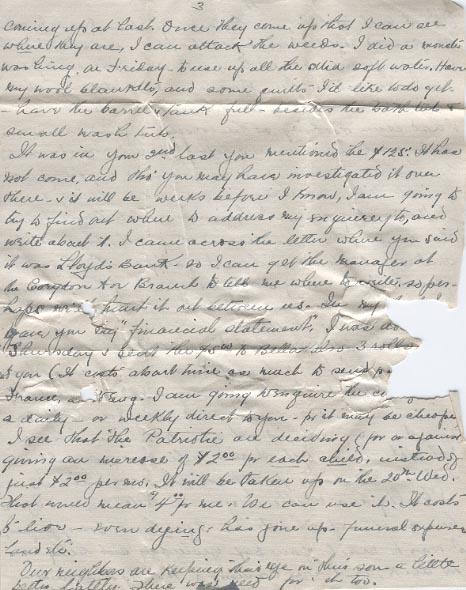 3
coming up at last. Once they come up that I can see
where they are, I can attack the weeds. I did a monster
washing on Friday to use up all the soft water. Have
my wool blankets, and some quilts - I'd like to do yet
- have the barrel & tank full - besides the bath tub &
small wash tub.
It was in your 2nd last you mentioned the $125. It has
not come, and tho' you may have investigated it over
there - & it will be weeks before I know, I am going to
try to find out where to address my enquiry to, and
write about it. I came across the letter where you said
it was Lloyd's Bank - so I can get the manager at
the Corydon Ave Branch to tell me where to write, so per-
haps we'll hunt it out between us. In my
gave you my "financial statement". I was
Thursday & sent the $5.00 to Bella. Also 3
to you (It costs about twice as much to send
France, as to Eng. I am going to enquire the
a daily - or weekly direct to you - for it may be cheape
I see that The Patriotic are deciding (for or against
giving an increase of $2.00 for each child, instead of
just $2.00 per mo. It will be taken up on the 20th Wed.
That would mean $4.00 for me. We can use it. It costs
to live - even dying has gone up - funeral expenses
Our neighbors are keeping their eye on their son a little
better lately. There was need for it too.